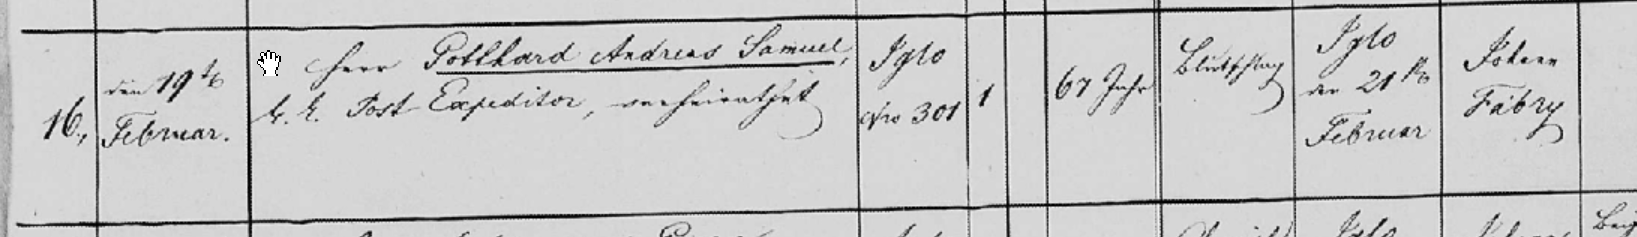 16.,
den 19t
Februar.
Herr Potthard Andreas Samuel,
k. k. Post Expeditor, verheirathet
Iglo
Nro 301
1
67 Jahr
Blutschlag
Iglo
den 21t
Februar
Johann
Fabry
Iglo